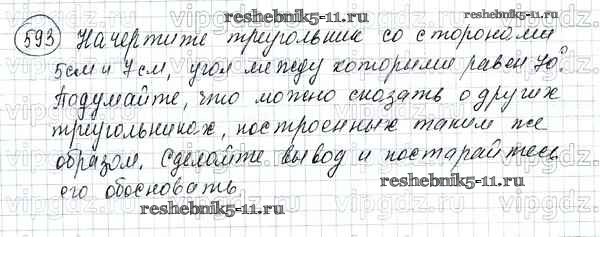 reshebnik5-11.ru
593 Начертите треугольник со сторонами
5см и 7см, угол между которыми равен 70°.
Подумайте, что можно сказать о других
треугольниках, построенных таким же
образом. Сделайте вывод и постарайтесь
его обосновать.
reshebnik5-11.ru
reshebnik5-11.ru